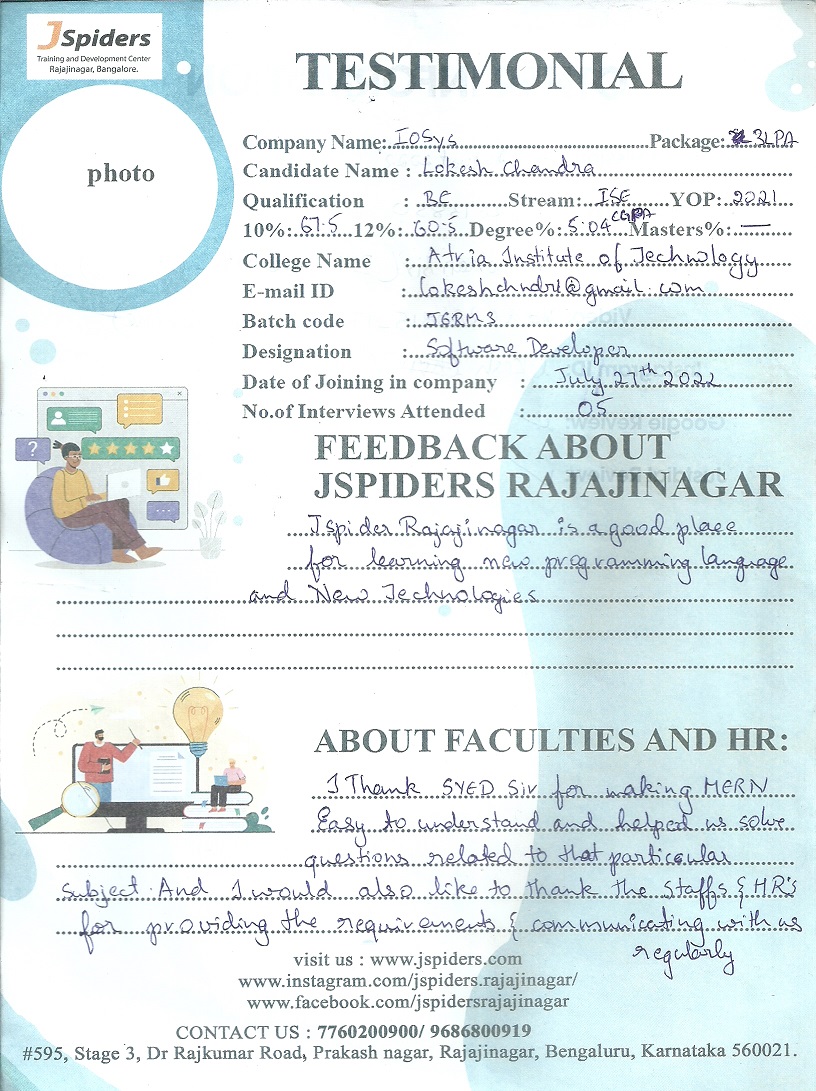 JSpiders
Training and Development Center
Rajajinagar, Bangalore.
TESTIMONIAL
photo
Company Name: IOSys Package: 3LPA
Candidate Name : Lokesh Chandra
Qualification : BE Stream: ISE YOP: 2021
10%: 67.5 12%: 60.5 Degree%: 5.04 CGPA Masters%: —
College Name : Atria Institute of Technology
E-mail ID : lokeshchndr1@gmail.com
Batch code : JGRMS
Designation : Software Developer
Date of Joining in company : July 27th 2022
No.of Interviews Attended : 05
?
FEEDBACK ABOUT
JSPIDERS RAJAJINAGAR
Jspider Rajajinagar is a good place
for learning new programming language
and New Technologies
ABOUT FACULTIES AND HR:
I Thank SYED Sir for making MERN
Easy to understand and helped us solve
questions related to that particular
subject. And I would also like to thank the Staffs & HR's
for providing the requirements & communicating with us
regularly
visit us : www.jspiders.com
www.instagram.com/jspiders.rajajinagar/
www.facebook.com/jspidersrajajinagar
CONTACT US : 7760200900/ 9686800919
#595, Stage 3, Dr Rajkumar Road, Prakash nagar, Rajajinagar, Bengaluru, Karnataka 560021.